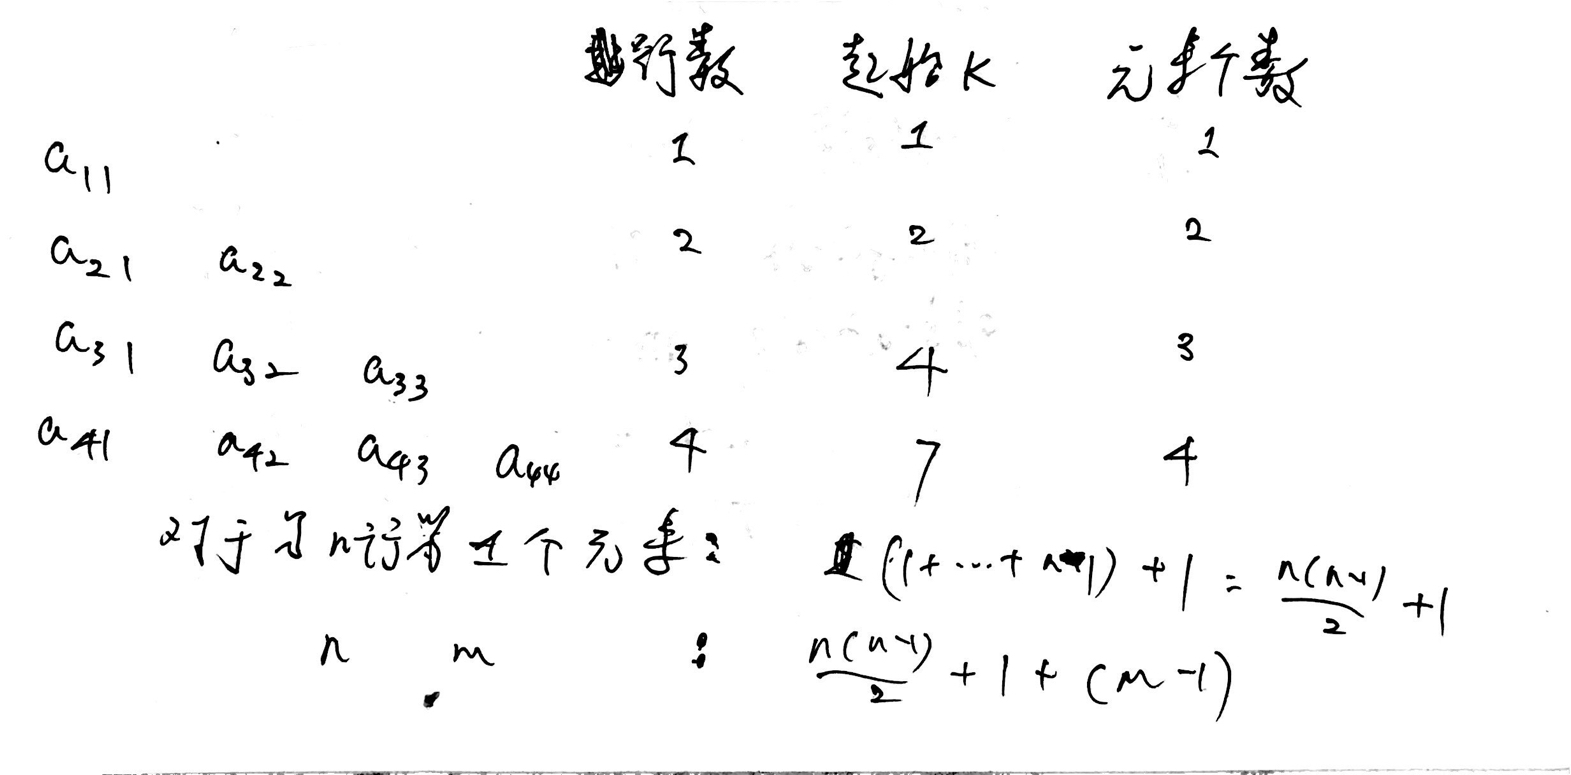 行数 起始K 元素个数
a11 1 1 1
a21 a22 2 2 2
a31 a32 a33 3 4 3
a41 a42 a43 a44 4 7 4
对于第n行第1个元素: (1+...+n-1)+1 = n(n-1)/2 +1
n m : n(n-1)/2 +1+(m-1)